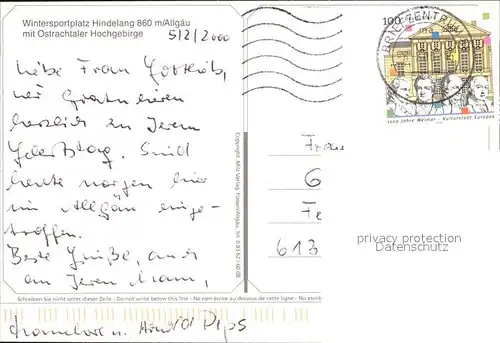 Wintersportplatz Hindelang 860 m/Allgäu
mit Ostrachtaler Hochgebirge
5/2/2000
Liebe Frau Gottlieb,
wir Gratulieren
herzlich zu Ihrem
Geburtstag. Sind
heute morgen hier
im Allgäu einge-
troffen.
Beste Grüße, auch
an Ihren Mann,
Hannelore u.
Schreiben Sie nicht unter dieser Zeile - Do not write below this line - Ne rien écrire au dessous de cette ligne - No escrib
BRIEFZENTRUM
100
1100 Jahre Weimar - Kulturstadt Europas
Frau
G
Fe
613
privacy protection
Datenschutz